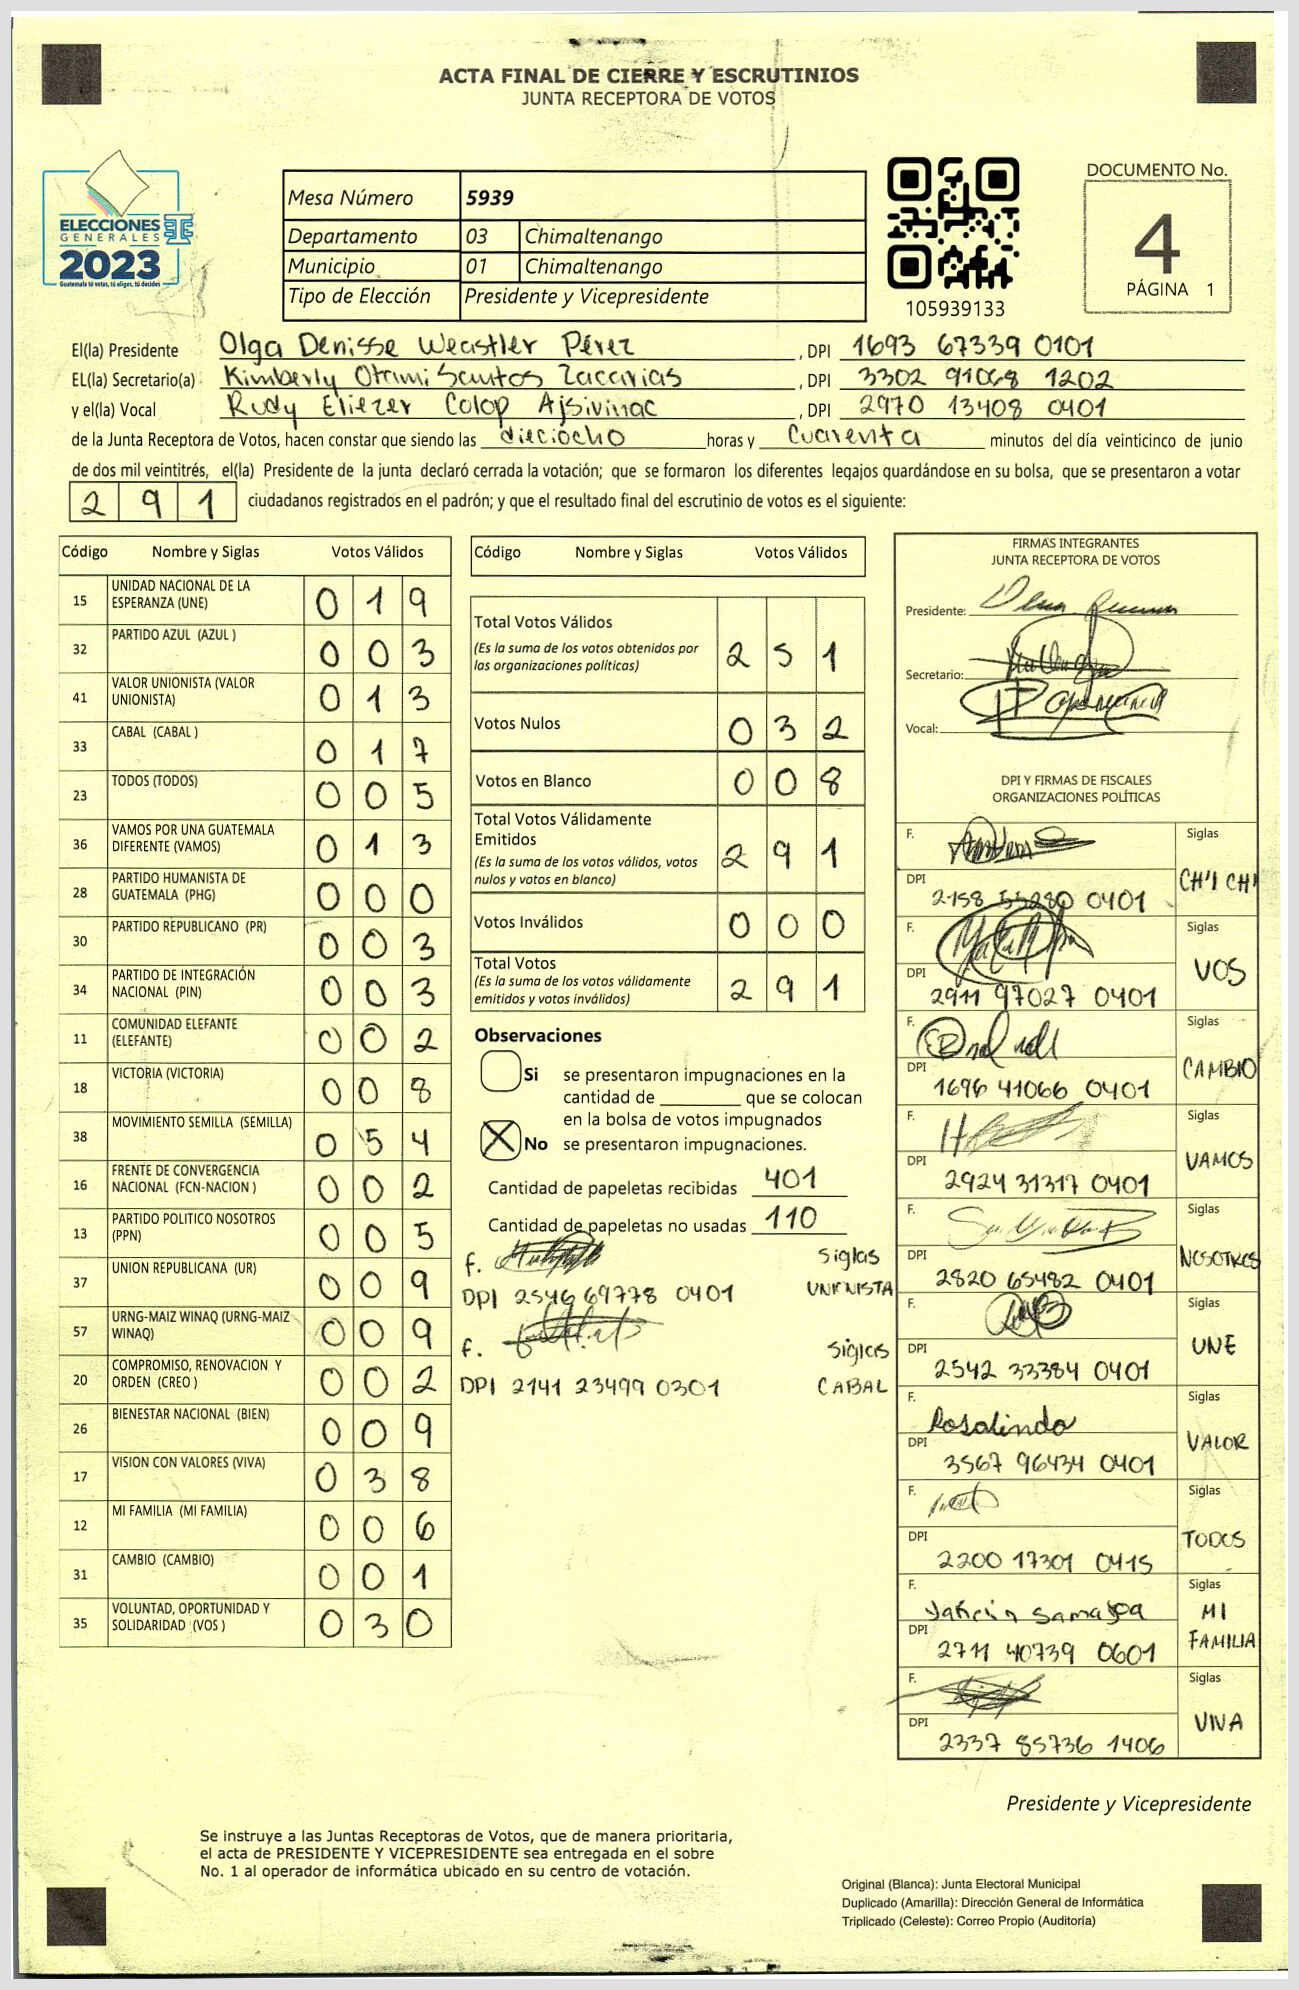 ACTA FINAL DE CIERRE Y ESCRUTINIOS
JUNTA RECEPTORA DE VOTOS
ELECCIONES
GENERALES
2023
Guatemala tú votas, tú eliges, tú decides
Mesa Número 5939
Departamento 03 Chimaltenango
Municipio 01 Chimaltenango
Tipo de Elección Presidente y Vicepresidente
105939133
DOCUMENTO No.
4
PÁGINA 1
El(la) Presidente Olga Denisse Weastler Pérez, DPI 1693 67339 0101
EL(la) Secretario(a) Kimberly Otami Santos Zacarias, DPI 3302 91068 1202
y el(la) Vocal Rudy Eliezer Colop Ajsivinac, DPI 2970 13408 0401
de la Junta Receptora de Votos, hacen constar que siendo las dieciocho horas y cuarenta minutos del día veinticinco de junio
de dos mil veintitrés, el(la) Presidente de la junta declaró cerrada la votación; que se formaron los diferentes legajos guardándose en su bolsa, que se presentaron a votar
291 ciudadanos registrados en el padrón; y que el resultado final del escrutinio de votos es el siguiente:
Código Nombre y Siglas Votos Válidos
15 UNIDAD NACIONAL DE LA ESPERANZA (UNE) 019
32 PARTIDO AZUL (AZUL ) 003
41 VALOR UNIONISTA (VALOR UNIONISTA) 013
33 CABAL (CABAL ) 017
23 TODOS (TODOS) 005
36 VAMOS POR UNA GUATEMALA DIFERENTE (VAMOS) 013
28 PARTIDO HUMANISTA DE GUATEMALA (PHG) 000
30 PARTIDO REPUBLICANO (PR) 003
34 PARTIDO DE INTEGRACIÓN NACIONAL (PIN) 003
11 COMUNIDAD ELEFANTE (ELEFANTE) 002
18 VICTORIA (VICTORIA) 008
38 MOVIMIENTO SEMILLA (SEMILLA) 054
16 FRENTE DE CONVERGENCIA NACIONAL (FCN-NACION ) 002
13 PARTIDO POLITICO NOSOTROS (PPN) 005
37 UNION REPUBLICANA (UR) 009
57 URNG-MAIZ WINAQ (URNG-MAIZ WINAQ) 009
20 COMPROMISO, RENOVACION Y ORDEN (CREO ) 002
26 BIENESTAR NACIONAL (BIEN) 009
17 VISION CON VALORES (VIVA) 038
12 MI FAMILIA (MI FAMILIA) 006
31 CAMBIO (CAMBIO) 001
35 VOLUNTAD, OPORTUNIDAD Y SOLIDARIDAD (VOS ) 030
Código Nombre y Siglas Votos Válidos
Total Votos Válidos 251
(Es la suma de los votos obtenidos por
las organizaciones políticas)
Votos Nulos 032
Votos en Blanco 008
Total Votos Válidamente
Emitidos 291
(Es la suma de los votos válidos, votos
nulos y votos en blanco)
Votos Inválidos 000
Total Votos 291
(Es la suma de los votos válidamente
emitidos y votos inválidos)
Observaciones
Si se presentaron impugnaciones en la
cantidad de ________ que se colocan
en la bolsa de votos impugnados
X No se presentaron impugnaciones.
Cantidad de papeletas recibidas 401
Cantidad de papeletas no usadas 110
f. Siglas
DPI 2546 69778 0401 UNIONISTA
f. Siglas
DPI 2141 23499 0301 CABAL
FIRMAS INTEGRANTES
JUNTA RECEPTORA DE VOTOS
Presidente:
Secretario:
Vocal:
DPI Y FIRMAS DE FISCALES
ORGANIZACIONES POLÍTICAS
F. Siglas
DPI 2158 55280 0401 CH'I CH'
F. Siglas
DPI 2911 97027 0401 VOS
F. Siglas
DPI 1696 41066 0401 CAMBIO
F. Siglas
DPI 2924 31317 0401 VAMOS
F. Siglas
DPI 2820 65482 0401 NOSOTROS
F. Siglas
DPI 2542 33384 0401 UNE
F. Rosalinda Siglas
DPI 3567 96434 0401 VALOR
F. Siglas
DPI 2200 17301 0415 TODOS
F. Samayoa Siglas
DPI 2711 40739 0601 MI FAMILIA
F. Siglas
DPI 2337 85736 1406 VIVA
Presidente y Vicepresidente
Se instruye a las Juntas Receptoras de Votos, que de manera prioritaria,
el acta de PRESIDENTE Y VICEPRESIDENTE sea entregada en el sobre
No. 1 al operador de informática ubicado en su centro de votación.
Original (Blanca): Junta Electoral Municipal
Duplicado (Amarilla): Dirección General de Informática
Triplicado (Celeste): Correo Propio (Auditoría)